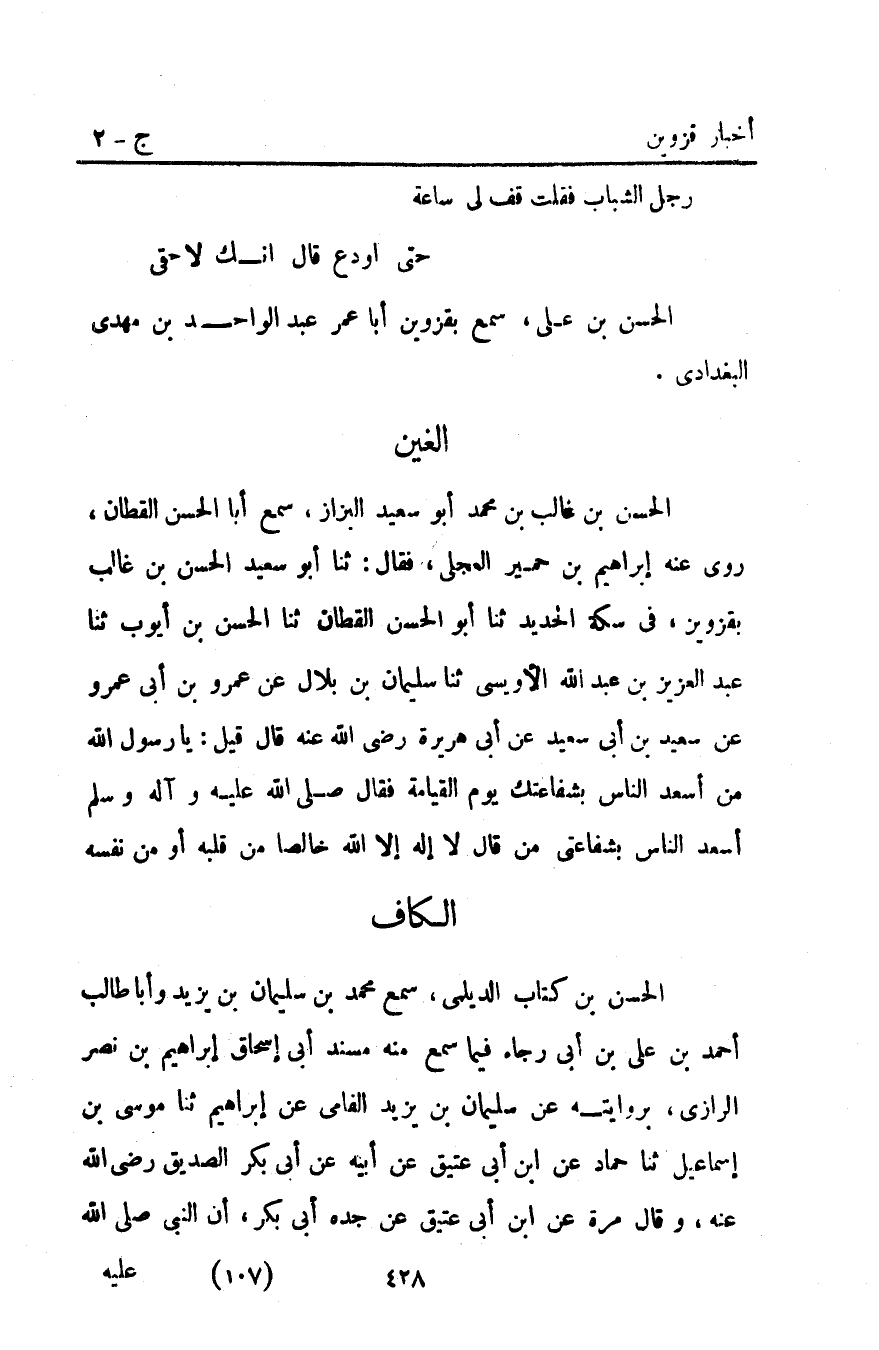 أخبار قزوين ج - ٢
رجل الشباب فقلت قف لى ساعة
حتى اودع قال انـــك لاحقى
الحسن بن عـلى ، سمع بقزوين أبا عمر عبد الواحـــد بن مهدى
البغدادى .
الغين
الحسن بن غالب بن محمد أبو سعيد البزاز ، سمع أبا الحسن القطان ،
روى عنه إبراهيم بن حمـير العجلى ، فقال : ثنا أبو سعيد الحسن بن غالب
بقزوين ، فى سكة الحديد ثنا أبو الحسن القطان ثنا الحسن بن أيوب ثنا
عبد العزيز بن عبد الله الأويسى ثنا سليمان بن بلال عن عمرو بن أبى عمرو
عن سعيد بن أبى سعيد عن أبى هريرة رضى الله عنه قال قيل : يا رسول الله
من أسعد الناس بشفاعتك يوم القيامة فقال صـلى الله عليـه و آله و سلم
أسعد الناس بشفاعتى من قال لا إله إلا الله خالصا من قلبه أو من نفسه
الـكاف
الحسن بن كتاب الديلمى ، سمع محمد بن سليمان بن يزيد وأبا طالب
أحمد بن على بن أبى رجاء فيما سمع منه مسند أبى إسحاق إبراهيم بن نصر
الرازى ، بروايتـــه عن سليمان بن يزيد الفامى عن إبراهيم ثنا موسى بن
إسماعيل ثنا حماد عن ابن أبى عتيق عن أبيه عن أبى بكر الصديق رضى الله
عنه ، و قال مرة عن ابن أبى عتيق عن جده أبى بكر ، أن النبى صلى الله
٤٢٨ (١٠٧) عليه